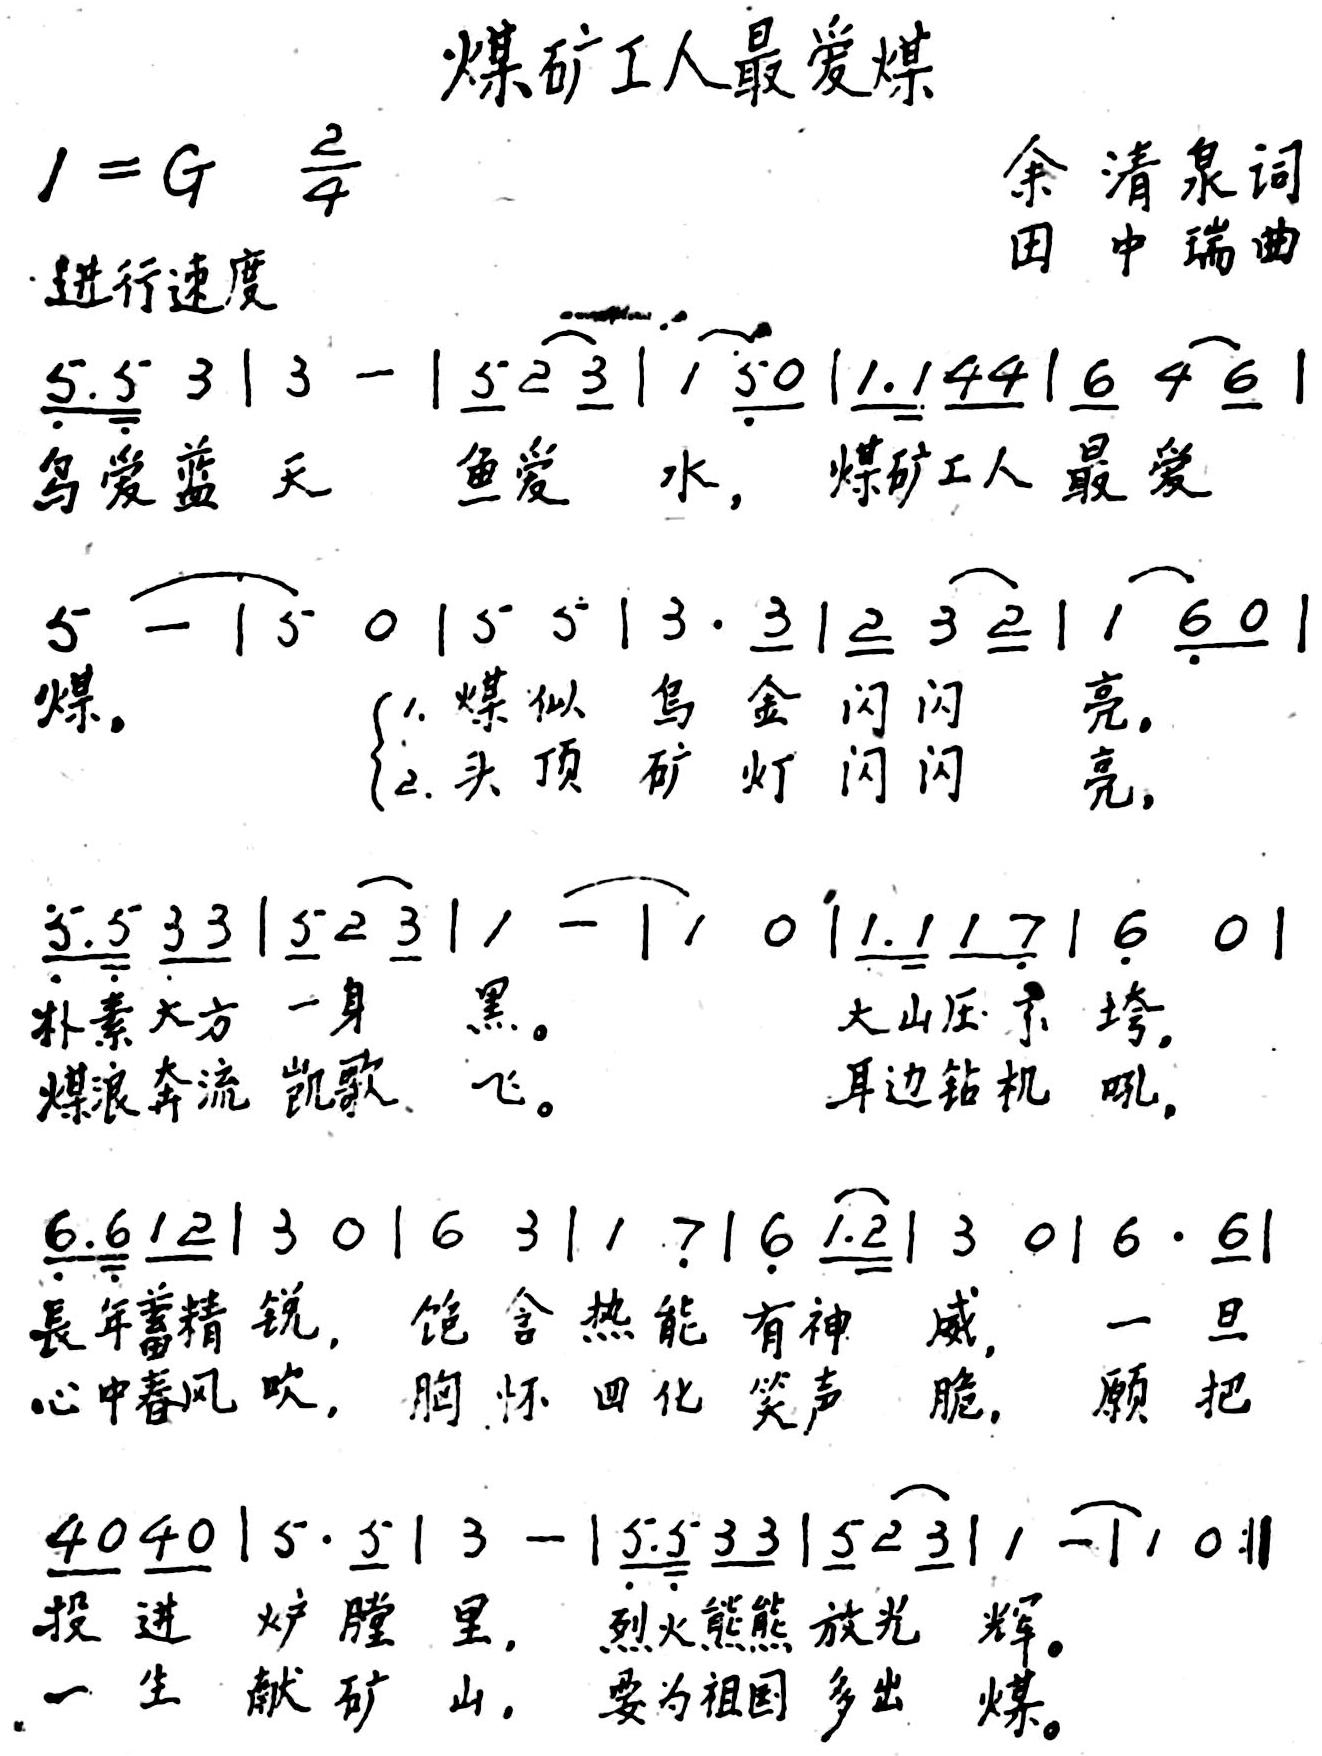 煤矿工人最爱煤
1=G 2/4
余清泉词
田中瑞曲
进行速度
5.5 3 | 3 - | 5 2 3 | 1 5 0 | 1.1 4 4 | 6 4 6 |
鸟爱蓝天 鱼爱 水, 煤矿工人 最爱
5 - | 5 0 | 5 5 | 3 · 3 | 2 3 2 | 1 6 0 |
煤。 1. 煤似 乌金 闪闪 亮。
2. 头顶 矿灯 闪闪 亮,
5.5 3 3 | 5 2 3 | 1 - | 1 0 | 1.1 1 7 | 6 0 |
朴素大方 一身 黑。 大山压不 垮,
煤浪奔流 凯歌 飞。 耳边钻机 吼,
6.6 1 2 | 3 0 | 6 3 | 1 7 | 6 1.2 | 3 0 | 6 · 6 |
長年蓄精 锐, 饱含 热能 有神 威, 一旦
心中春风 吹, 胸怀 四化 笑声 脆, 願把
4 0 4 0 | 5 · 5 | 3 - | 5.5 3 3 | 5 2 3 | 1 - | 1 0 :‖
投进 炉膛 里, 烈火熊熊 放光 辉。
一生 献矿 山, 要为祖国 多出 煤。